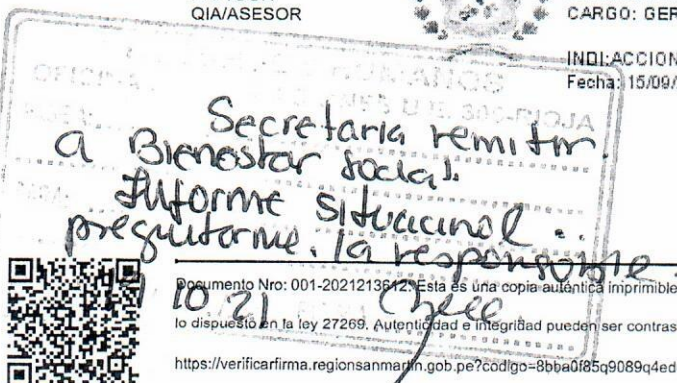 QIA/ASESOR
CARGO: GER
INDI:ACCION
Fecha: 15/09/
Secretaria remitir
a Bienestar social.
Informe situacinol ..
preguitarme. la responsable.
10 21
Documento Nro: 001-2021213612. Esta es una copia auténtica imprimible
lo dispuesto en la ley 27269. Autenticidad e integridad pueden ser contras
https://verificarfirma.regionsanmartin.gob.pe?codigo=8bba0f85q9089q4ed